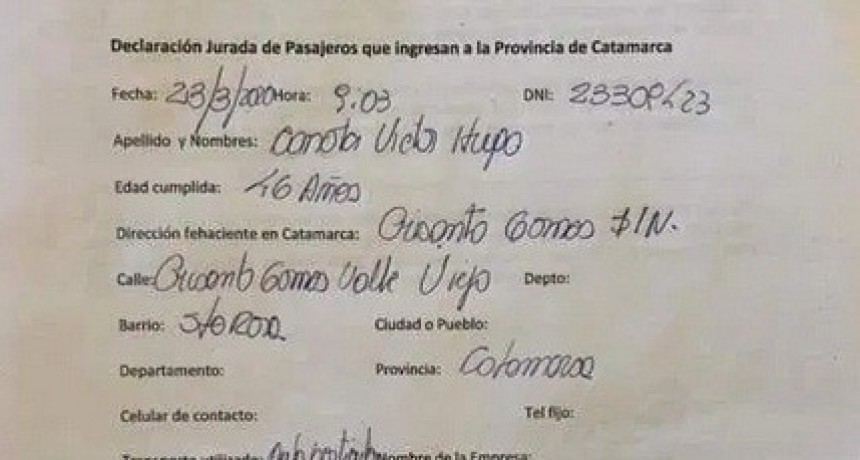 Declaración Jurada de Pasajeros que ingresan a la Provincia de Catamarca
Fecha: 23/3/2020 Hora: 9:03 DNI:
Apellido y Nombres: Victor Hugo
Edad cumplida: 46 Años
Dirección fehaciente en Catamarca: Crisanto Gomes S/N.
Calle: Crisanto Gomes Valle Viejo Depto:
Barrio: Sta Rosa Ciudad o Pueblo:
Departamento: Provincia: Catamarca
Celular de contacto: Tel fijo:
Transporte utilizado: Nombre de la Empresa: